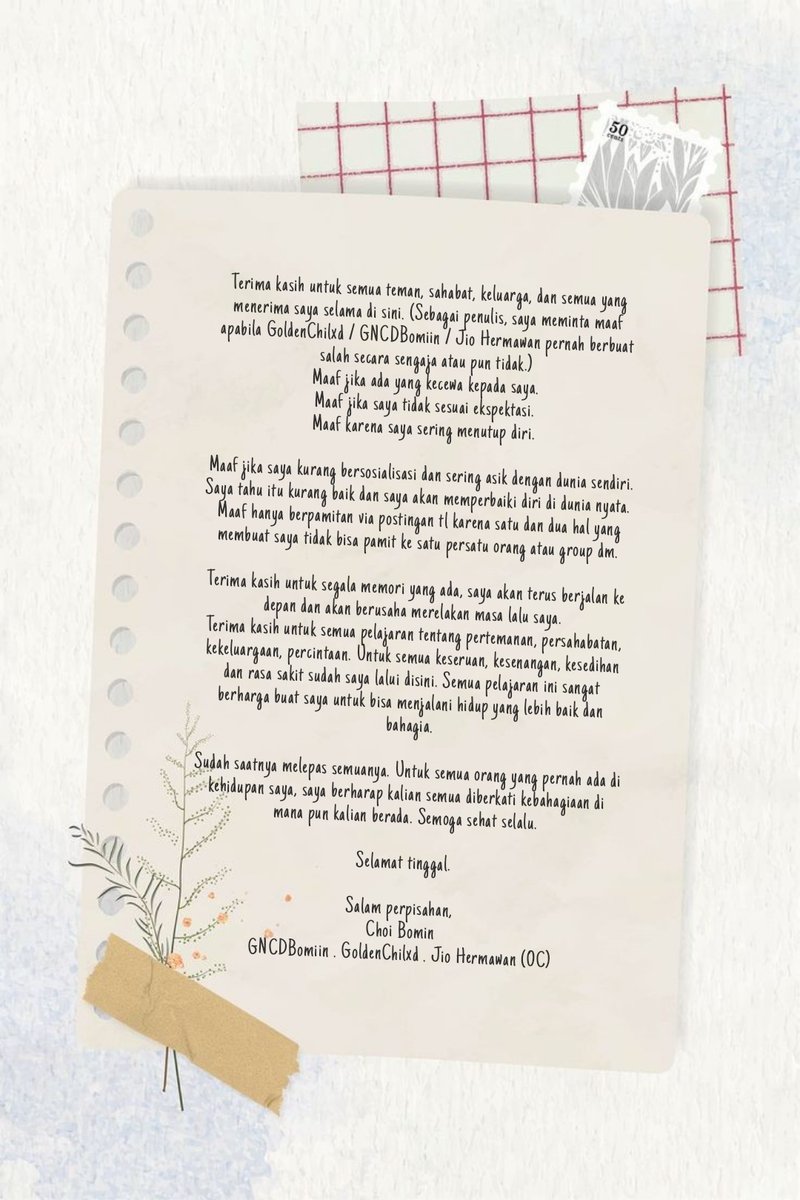 50
cents
Terima kasih untuk semua teman, sahabat, keluarga, dan semua yang
menerima saya selama di sini. (Sebagai penulis, saya meminta maaf
apabila GoldenChilxd / GNCDBomiin / Jio Hermawan pernah berbuat
salah secara sengaja atau pun tidak.)
Maaf jika ada yang kecewa kepada saya.
Maaf jika saya tidak sesuai ekspektasi.
Maaf karena saya sering menutup diri.
Maaf jika saya kurang bersosialisasi dan sering asik dengan dunia sendiri.
Saya tahu itu kurang baik dan saya akan memperbaiki diri di dunia nyata.
Maaf hanya berpamitan via postingan tl karena satu dan dua hal yang
membuat saya tidak bisa pamit ke satu persatu orang atau group dm.
Terima kasih untuk segala memori yang ada, saya akan terus berjalan ke
depan dan akan berusaha merelakan masa lalu saya.
Terima kasih untuk semua pelajaran tentang pertemanan, persahabatan,
kekeluargaan, percintaan. Untuk semua keseruan, kesenangan, kesedihan
dan rasa sakit sudah saya lalui disini. Semua pelajaran ini sangat
berharga buat saya untuk bisa menjalani hidup yang lebih baik dan
bahagia.
Sudah saatnya melepas semuanya. Untuk semua orang yang pernah ada di
kehidupan saya, saya berharap kalian semua diberkati kebahagiaan di
mana pun kalian berada. Semoga sehat selalu.
Selamat tinggal.
Salam perpisahan,
Choi Bomin
GNCDBomiin . GoldenChilxd . Jio Hermawan (OC)